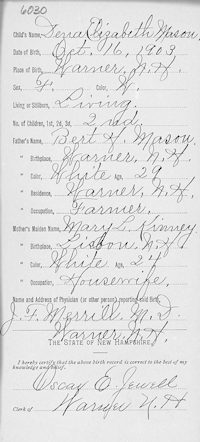 6030
Child's Name, Dena Elizabeth Mason
Date of Birth, Oct. 16, 1903
Place of Birth, Warner, N.H.
Sex, F. Color, W.
Living or Stillborn, Living.
No. of Children, 1st, 2d, 3d, 2nd.
Father's Name, Bert H. Mason
" Birthplace, Warner, N.H.
" Color, White Age, 29
" Residence, Warner, N.H.
" Occupation, Farmer.
Mother's Maiden Name, Mary L. Kinney
" Birthplace, Lisbon, N.H.
" Color, White Age, 24
" Occupation, Housewife.
Name and Address of Physician (or other person) reporting said Birth,
J. F. Merrill, M.D.
Warner, N.H.
THE STATE OF NEW HAMPSHIRE.
I hereby certify that the above birth record is correct to the best of my
knowledge and belief.
Oscar E. Jewell
Clerk of Warner N.H.